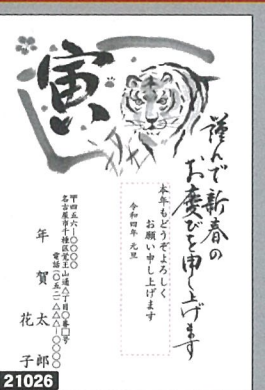 寅
謹んで新春の
お慶びを申し上げます
本年もどうぞよろしく
お願い申し上げます
令和四年 元旦
〒四五六-〇〇〇〇
名古屋市千種区覚王山通△丁目〇番□号
電話(〇五二)△△△-〇〇〇〇
年賀 太郎
花子
21026